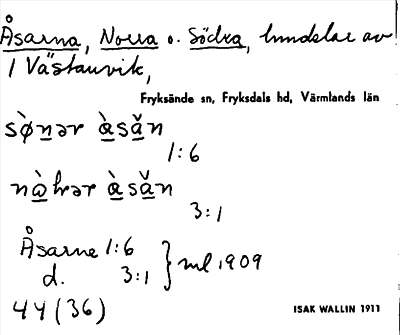 Åsarna, Norra o. Södra, hmdelar av
1 Västanvik,
Fryksände sn, Fryksdals hd, Värmlands län
sø̀nər àsǎn
1:6
nòhər àsǎn
3:1
Åsarne 1:6
d. 3:1 } ml 1909
44 (36)
ISAK WALLIN 1911